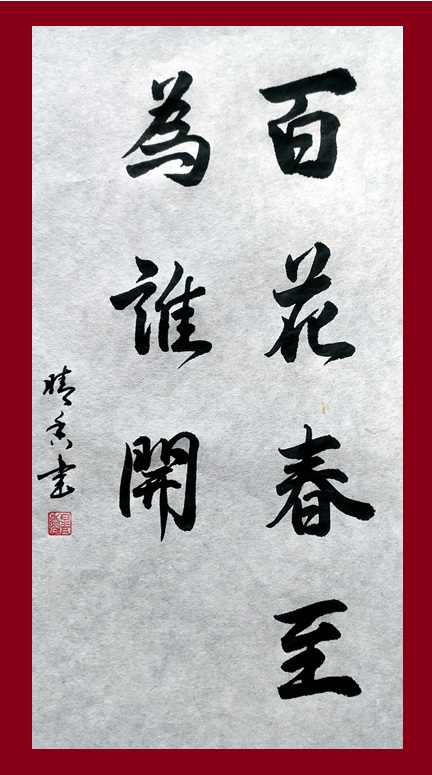 百花春至
為誰開
晴香書